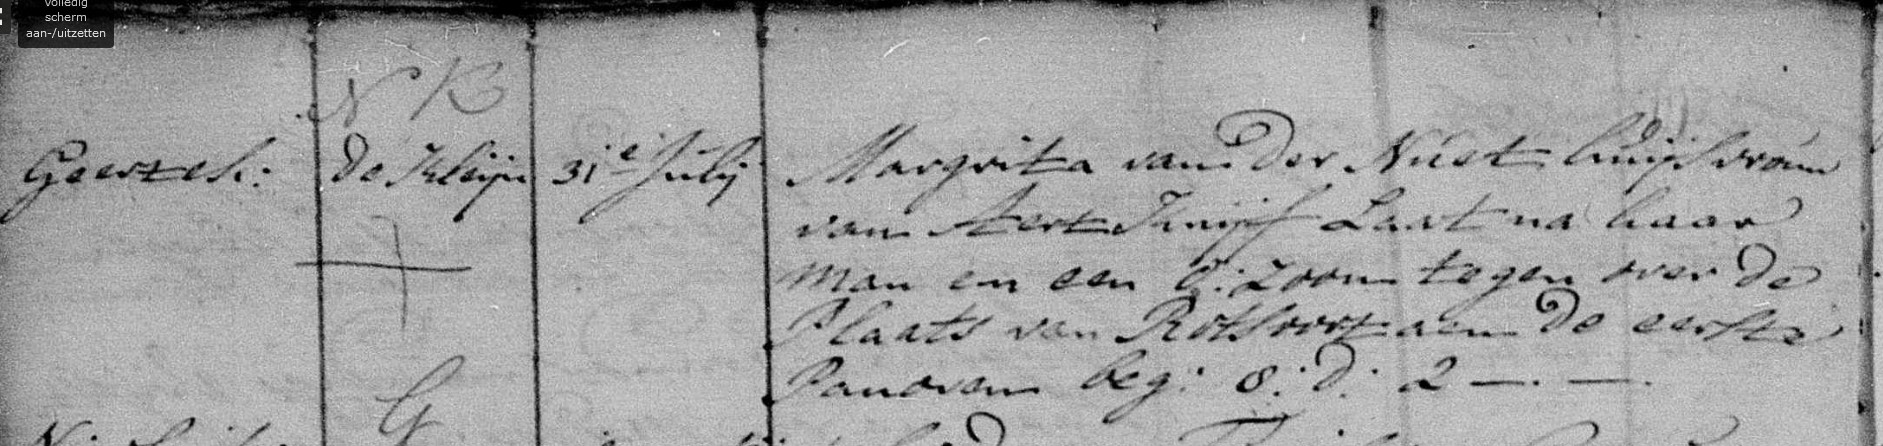 volledig
scherm
aan-/uitzetten
N B
Geertek: de Kleijn 31e July Margrita van der Niet huijsvrouw
van Aert Knijf Laat na haar
man en een o: zoon tegen over de
Plaats van Rotsoort aan de eerste
Panoven beg: 8: d: 2 —. —.
G